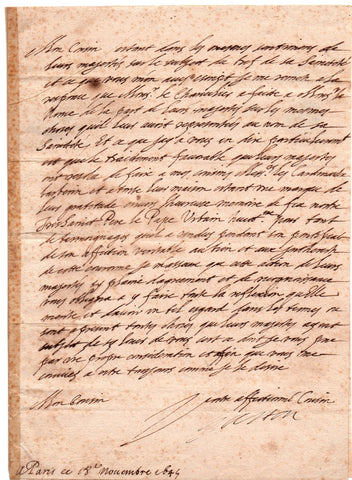 Mon Cousin estant dans les mesmes sentimens de
leurs majestés sur le subject de de sa Sainteté
et ce que vous mon aves escript je me remets a la
response que Monsr le Chancelier a faite a Monsr le
Nonce de la part de leurs majestés sur les mesmes
choses qu'il leur avoit representées au nom de sa
Sainteté Et ce que je vous en dire particulierement
est que le traictement favorable que leurs majestés
ont de faire a mes Messrs les Cardinaux
barberin et a toute leur maison estant une marque de
leur gratitude envers l'heureuse memoire de feu nostre
Tres Sainct Pere le Pape Urbain huictme pour tant
de tesmoignages qu'il a rendus pendant son pontificat
de son affection veritable au Roy et aux
de cette couronne je m'asseure que cette action de leurs
majestés pleine d'agrement et de recognoissance
vous obligera a y faire toute la reflexion qu'elle
merite et d'avoir en tel esgard dans les termes ou
sont a present toutes choses que leurs majestés ayent
subject de se louer de vous c'est a dont je vous prie
par vre propre consideration et afin que vous me
conviez a estre tousjours comme je le dois
Mon Cousin
Vostre affectionné Cousin
Gaston
a Paris ce 18e Novembre 1645